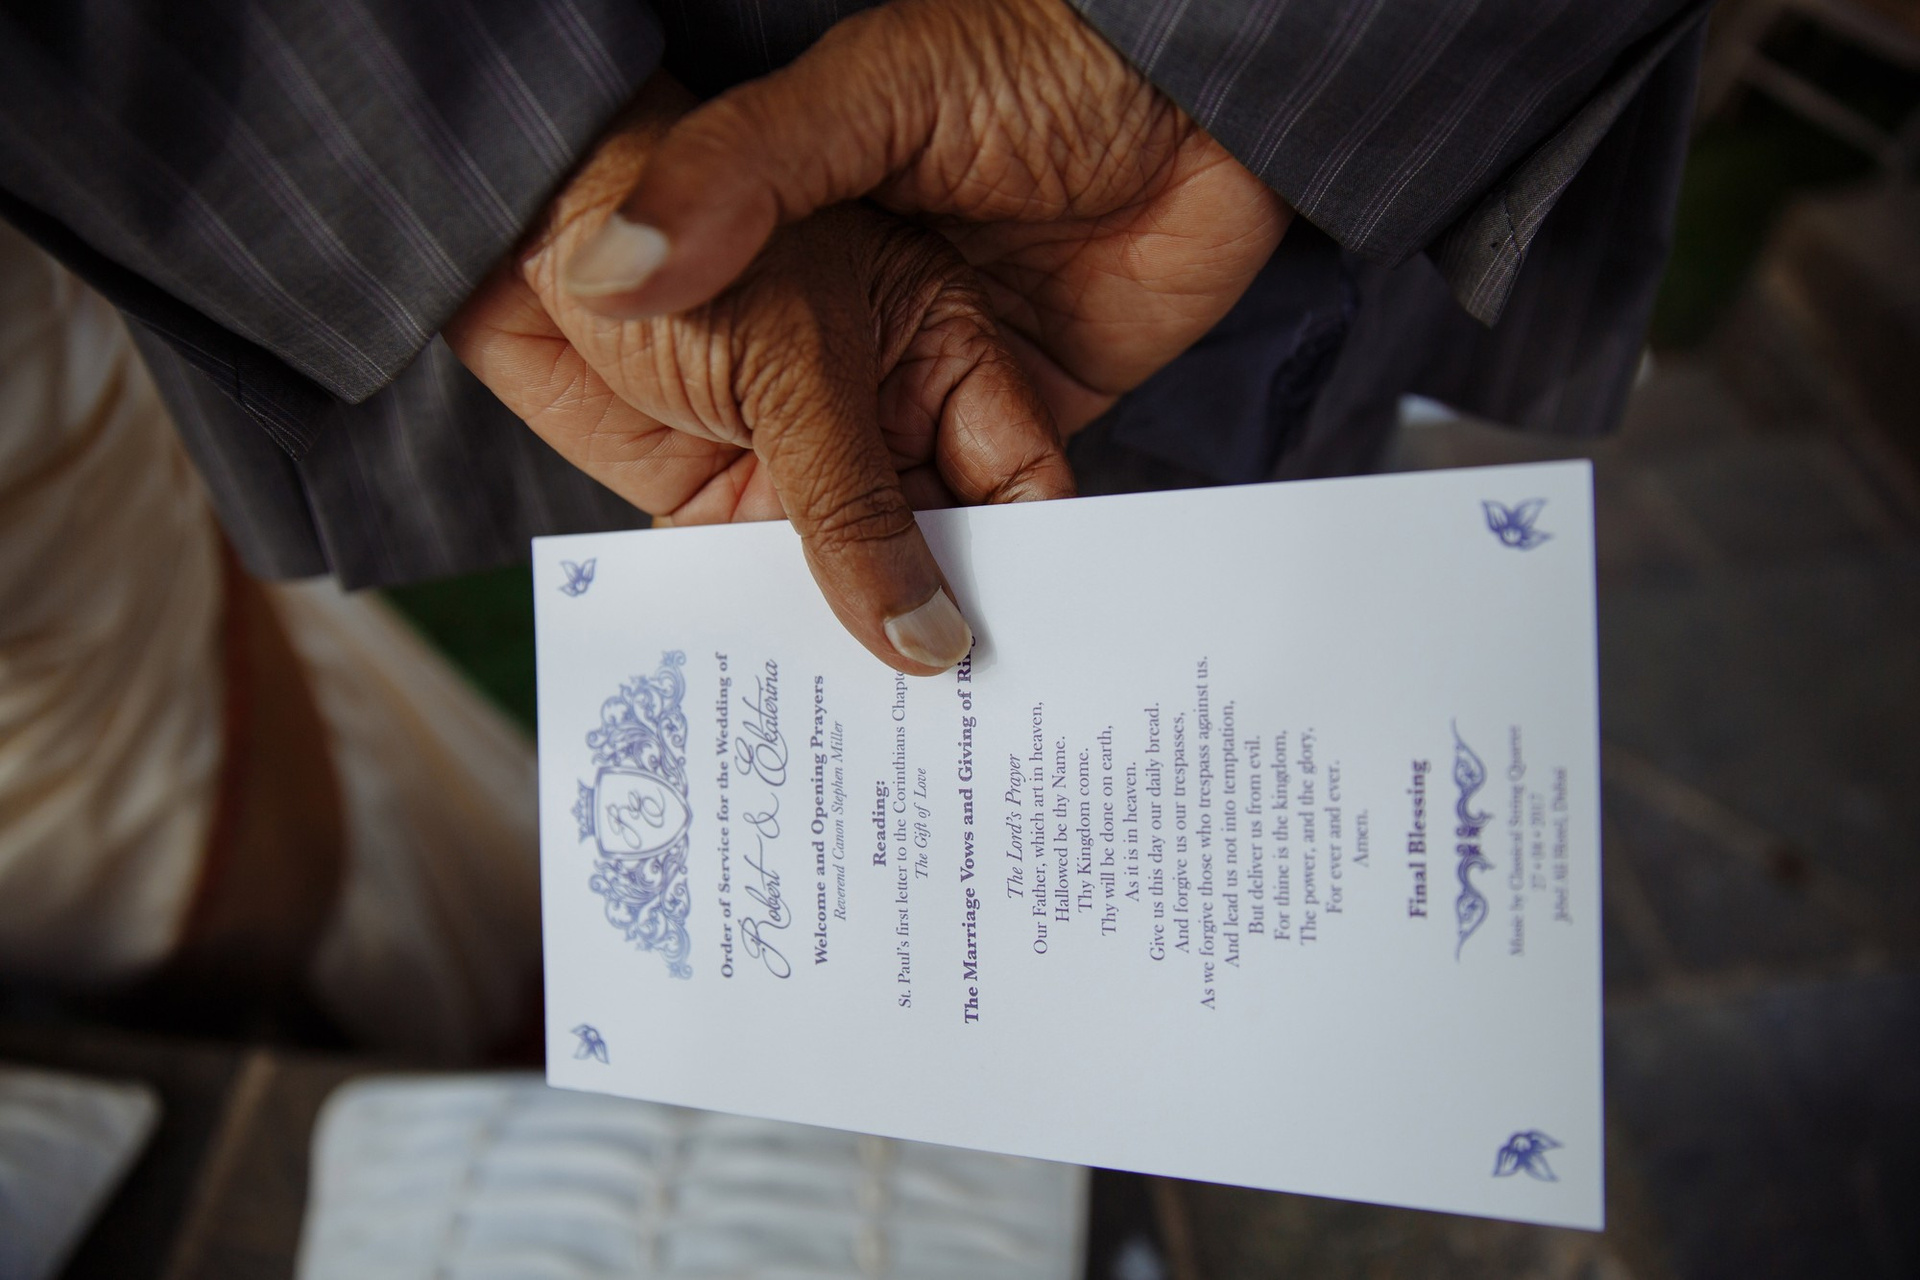 R E
Order of Service for the Wedding of
Robert & Ekaterina
Welcome and Opening Prayers
Reverend Canon Stephen Miller
Reading:
St. Paul's first letter to the Corinthians Chapte
The Gift of Love
The Marriage Vows and Giving of Rin
The Lord's Prayer
Our Father, which art in heaven,
Hallowed be thy Name.
Thy Kingdom come.
Thy will be done on earth,
As it is in heaven.
Give us this day our daily bread.
And forgive us our trespasses,
As we forgive those who trespass against us.
And lead us not into temptation,
But deliver us from evil.
For thine is the kingdom,
The power, and the glory,
For ever and ever.
Amen.
Final Blessing
Music by Classical String Queens
2017
Jebel Ali Hotel, Dubai